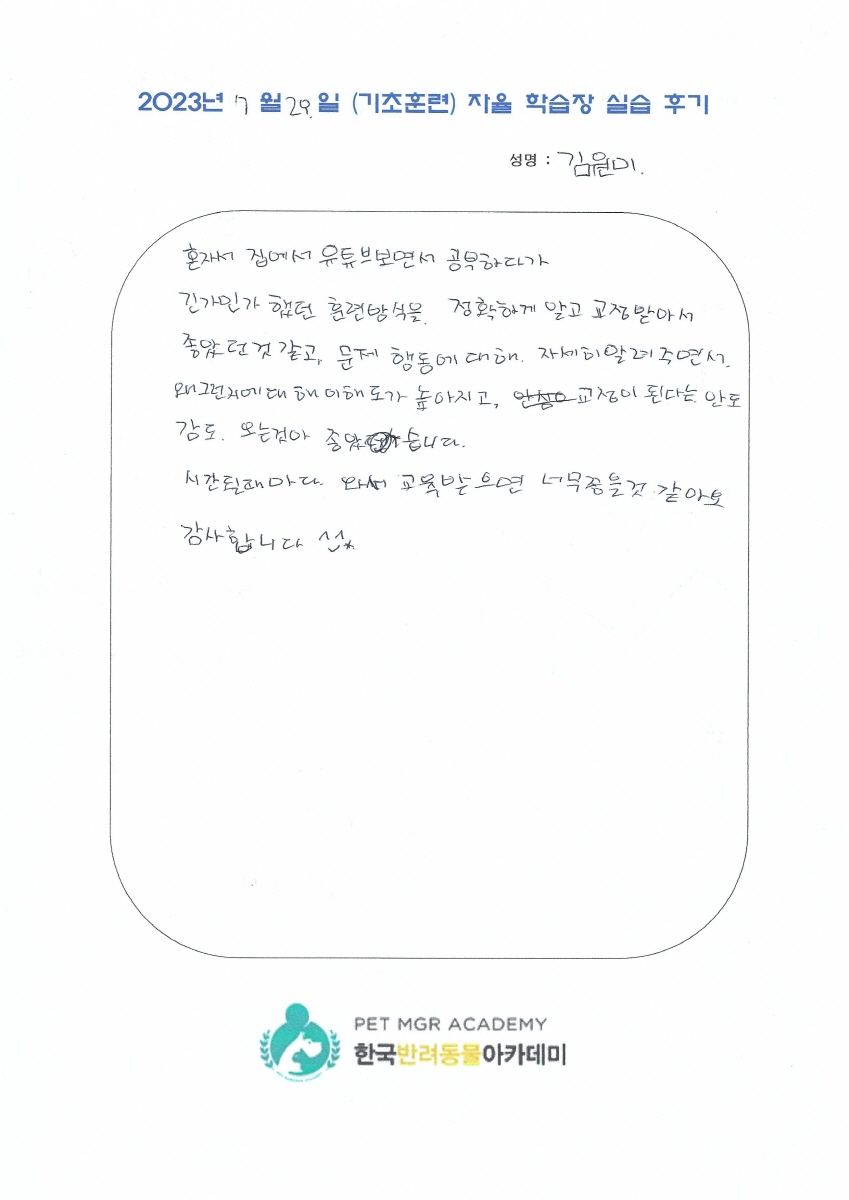 2023년 7월 29.일 (기초훈련) 자율 학습장 실습 후기
성명 : 김원미.
혼자서 집에서 유튜브보면서 공부하다가
긴가민가 했던 훈련방식을. 정확하게 알고 교정받아서
좋았던것 같고, 문제 행동에 대해. 자세히알려주면서.
왜그런지에대해 이해도가 높아지고, 교정이 된다는 안도
감도. 오는검아 좋았습니다.
시간될때마다 와서 교육받으면 너무좋을것 같아요
감사합니다 ^^
PET MGR ACADEMY
한국반려동물아카데미